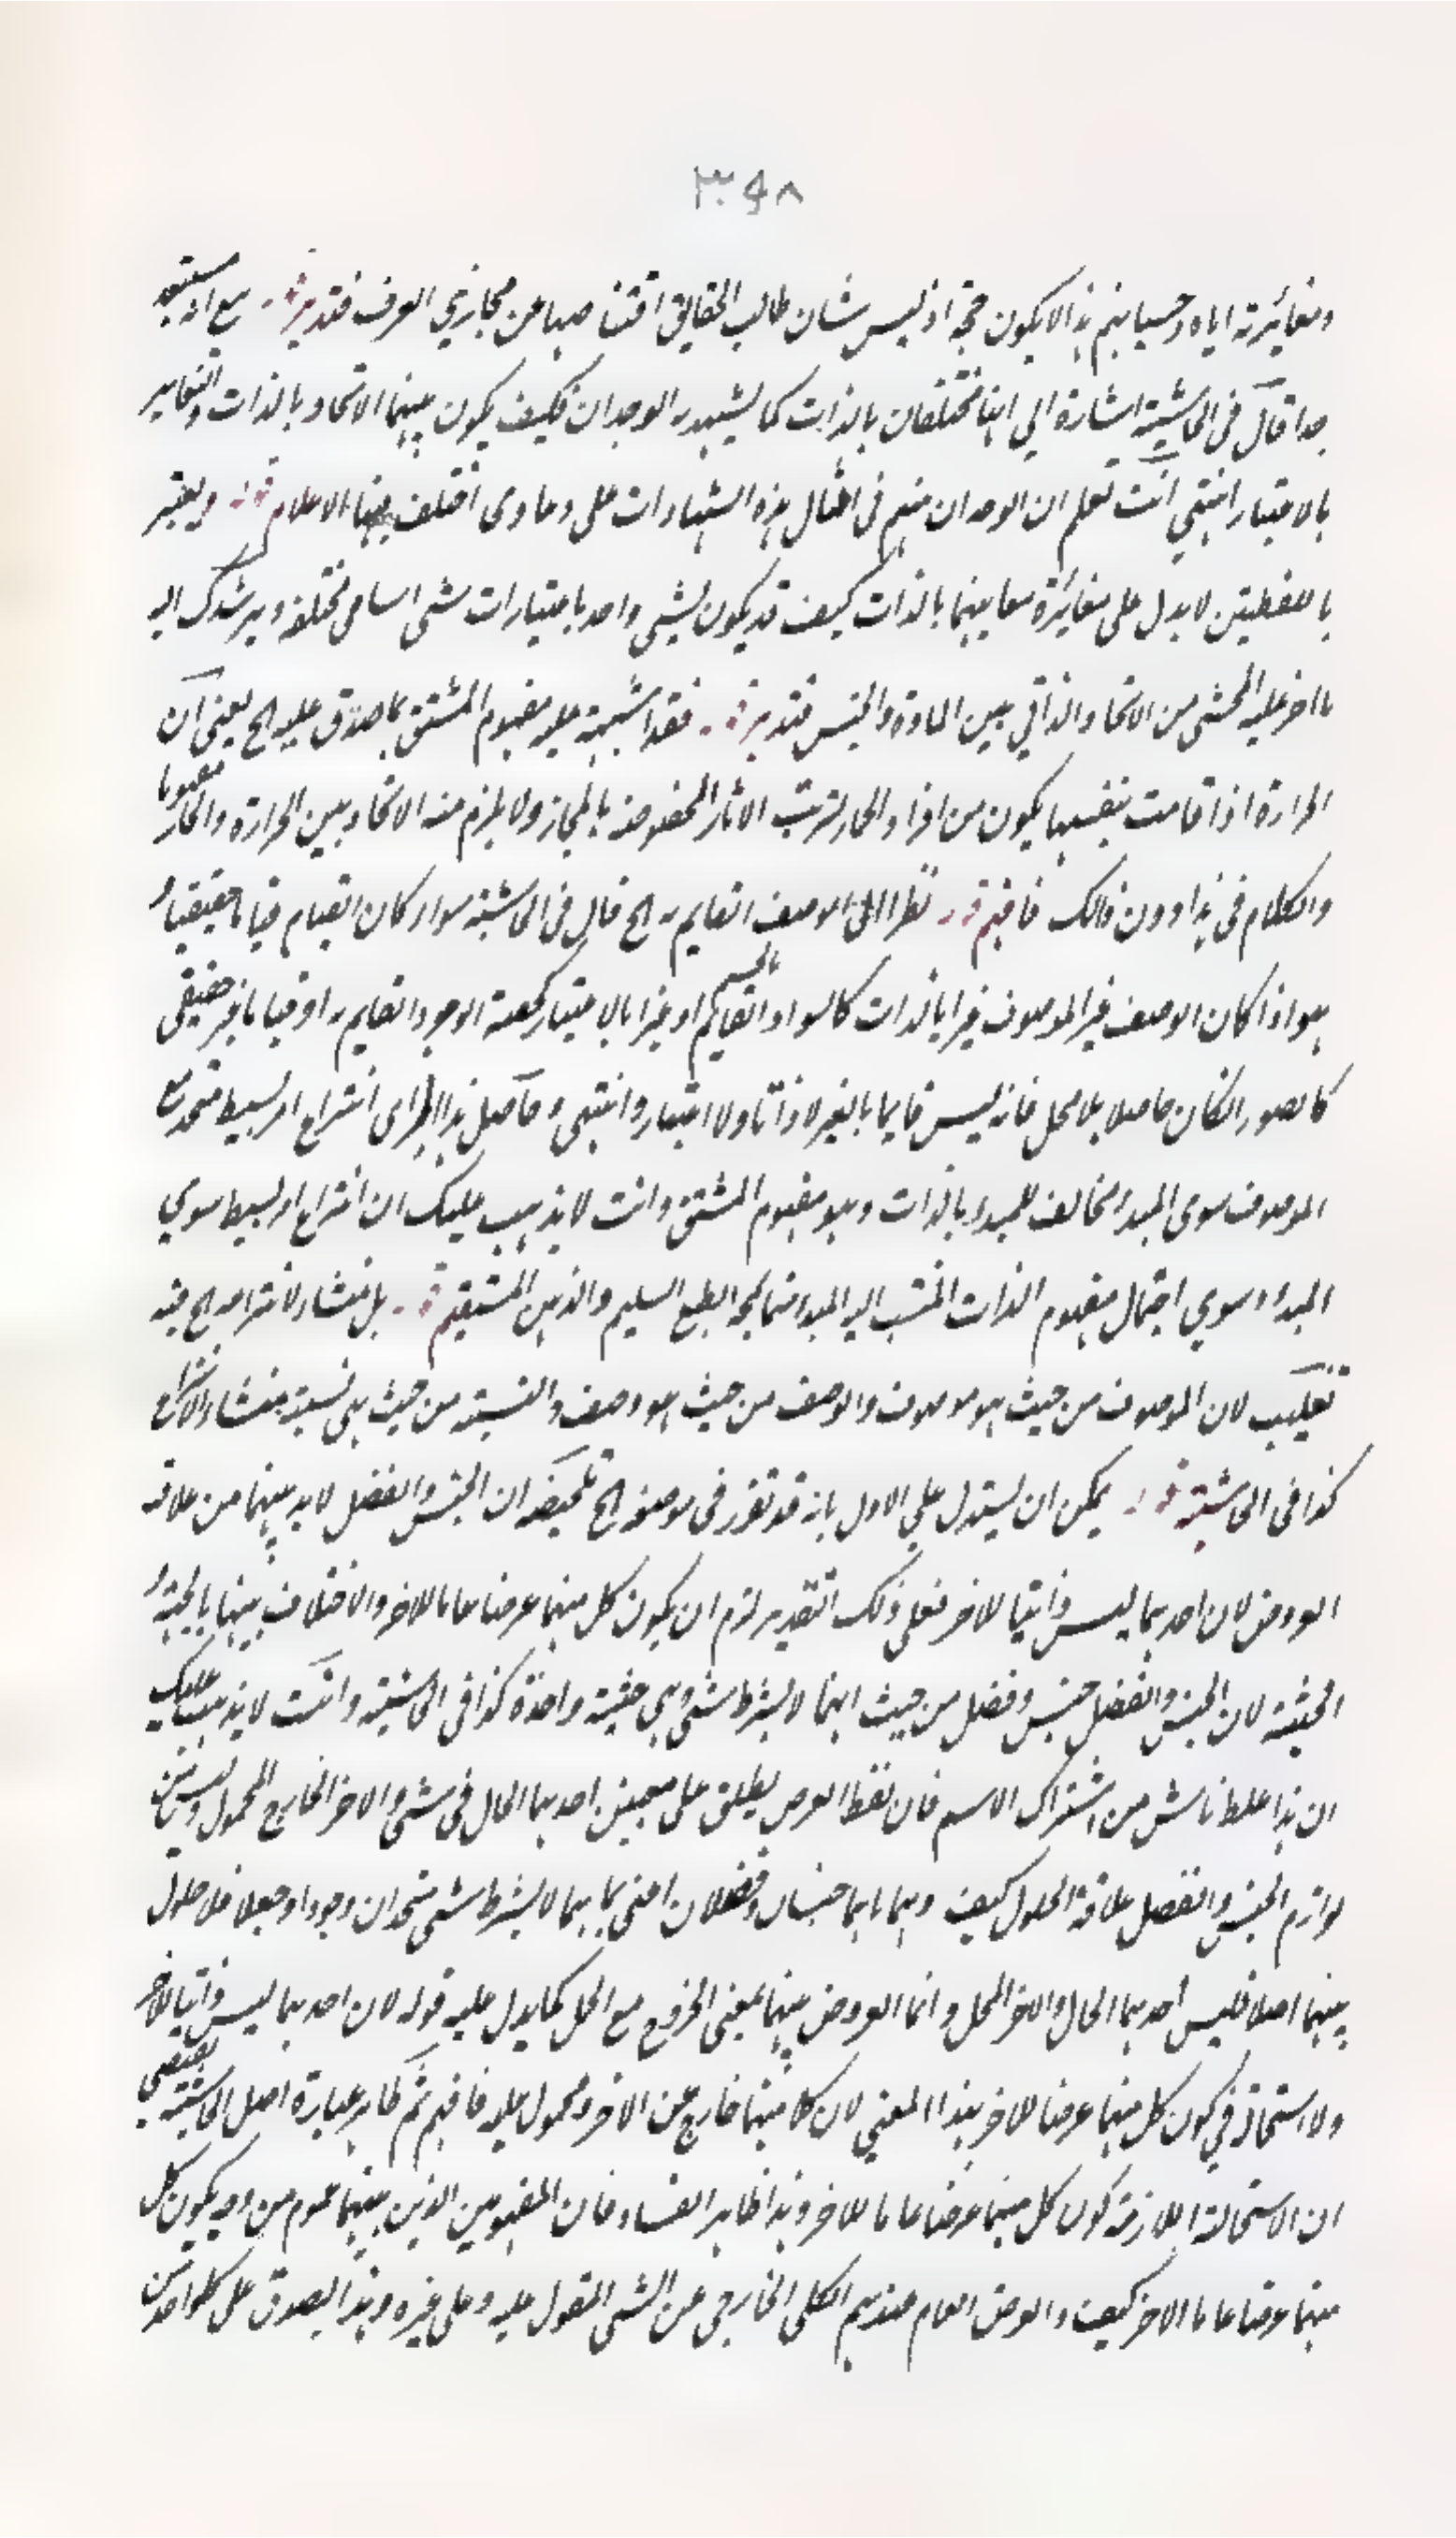 ٣٠٩٨
ومغائرته اياه وحسبانهم هذا لا يكون حجة اذ ليس شان طالب الحقايق اقتناصها عن مجازي العرف فتدبر قوله مع انه مستبعد
جدا قال في الحاشية اشارة الي انهما مختلفان بالذات كما يشهد به الوجدان فكيف يكون بينهما الاتحاد بالذات والتغاير
بالاعتبار انتهي انت تعلم ان الوجدان منهم في امثال هذه الشهادات على دعاوى اختلف فيها الاعلام قوله ويعبر
باللفظين لا يدل على مغائرة معاينهما بالذات كيف قد يكون لشي واحد باعتبارات شتى اسامى مختلفة ويرشدك اليه
ما اخذ عليه المحشى من الاتحاد الذاتي بين المادة والجنس فتدبر قوله فقد اشتبه عليه مفهوم المشتق بما صدق عليه الخ يعني ان
الحرارة اذا قامت بنفسها يكون من افراد الحار لترتب الاثار المخصوصة بالحار ولا يلزم منه الاتحاد بين الحرارة والحار مفهوما
والكلام في هذا دون ذالك فافهم قوله نظرا الى الوصف القايم به الخ قال في الحاشية سواء كان القيام قياما حقيقيا
هو اذا كان الوصف غير الموصوف غيرا بالذات كالسواد القايم بالجسم او غيرا بالاعتبار كحصة الوجود القايم به او قياما غير حقيقى
كما تصور الكان حاصلا بلا محل فانه ليس قايما بالغير لا ذاتا ولا اعتبارا انتهى وحاصل هذا الراى انتزاع امر بسيط متحد مع
الموصوف سوى المبدا مخالف للمبداء بالذات وهو مفهوم المشتق وانت لا يذهب عليك ان انتزاع امر بسيط سوي
المبداء وسوي اجمال مفهوم الذات المنتسب اليه المبدا مما يمجه الطبع السليم والذهن المستقيم قوله بل منشاء لانتزاعه الخ فيه
تغليب لان الموصوف من حيث هو موصوف والوصف من حيث هو وصف والنسبة من حيث هى نسبة منشاء الانتزاع
كذا في الحاشية قوله يمكن ان يستدل علي الاول بانه قد تقرر في موضعه الخ تلخيصه ان الجنس والفصل لا بد بينهما من علاقة
العروض لان احدهما ليس ذاتيا للاخر فعلى ذلك التقدير لزم ان يكون كل منهما عرضا عاما للاخر والاختلاف بينهما بالحيثية
الحيثية لان الجنس والفصل جنس وفصل من حيث انهما لا بشرط شي وهى حيثية واحدة كذا في الحاشية وانت لا يذهب عليك
ان هذا غلط ناش من اشتراك الاسم فان لفظ العرض يطلق على معنيين احدهما الحال في شي والاخر الخارج المحمول وليس من
لوازم الجنس والفصل علاقة الحلول كيف وهما بما هما جنسان وفصلان اعنى بما هما لا بشرط شي متحدان وجودا وجعلا فلا حلول
بينهما اصلا فليس احدهما الحال والاخر المحل وانما العروض بينهما بمعنى الخروج مع الحمل كما يدل عليه قوله لان احدهما ليس ذاتيا للاخر
ولا استحالة في كون كل منهما عرضا للاخر بهذا المعني لان كلا منهما خارج عن الاخر ومحمول عليه فافهم ثم ظاهر عبارة اصل الحاشية يقتضي
ان الاستحالة اللازمة كون كل منهما عرضا عاما للاخر وهذا ظاهر الفساد فان المفهومين الذين بينهما عموم من وجه يكون كل
منهما عرضا عاما الاخر كيف والعرض العام عندهم الكلى الخارجي عن الشى المقول عليه وعلى غيره وهذا يصدق على كلواحد من